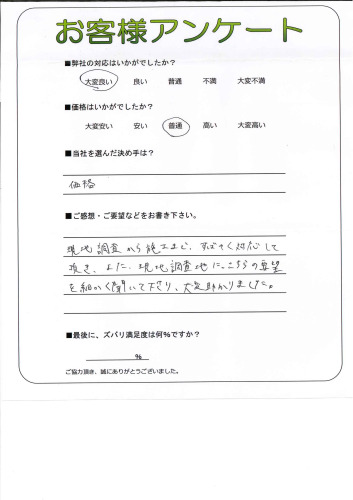 お客様アンケート
■弊社の対応はいかがでしたか？
大変良い 良い 普通 不満 大変不満
■価格はいかがでしたか？
大変安い 安い 普通 高い 大変高い
■当社を選んだ決め手は？
価格
■ご感想・ご要望などをお書き下さい。
現地調査から施工まで、すばやく対応して
頂き、また、現地調査時に、こちらの要望
を細かく聞いて下さり、大変助かりました。
■最後に、ズバリ満足度は何%ですか？
%
ご協力頂き、誠にありがとうございました。